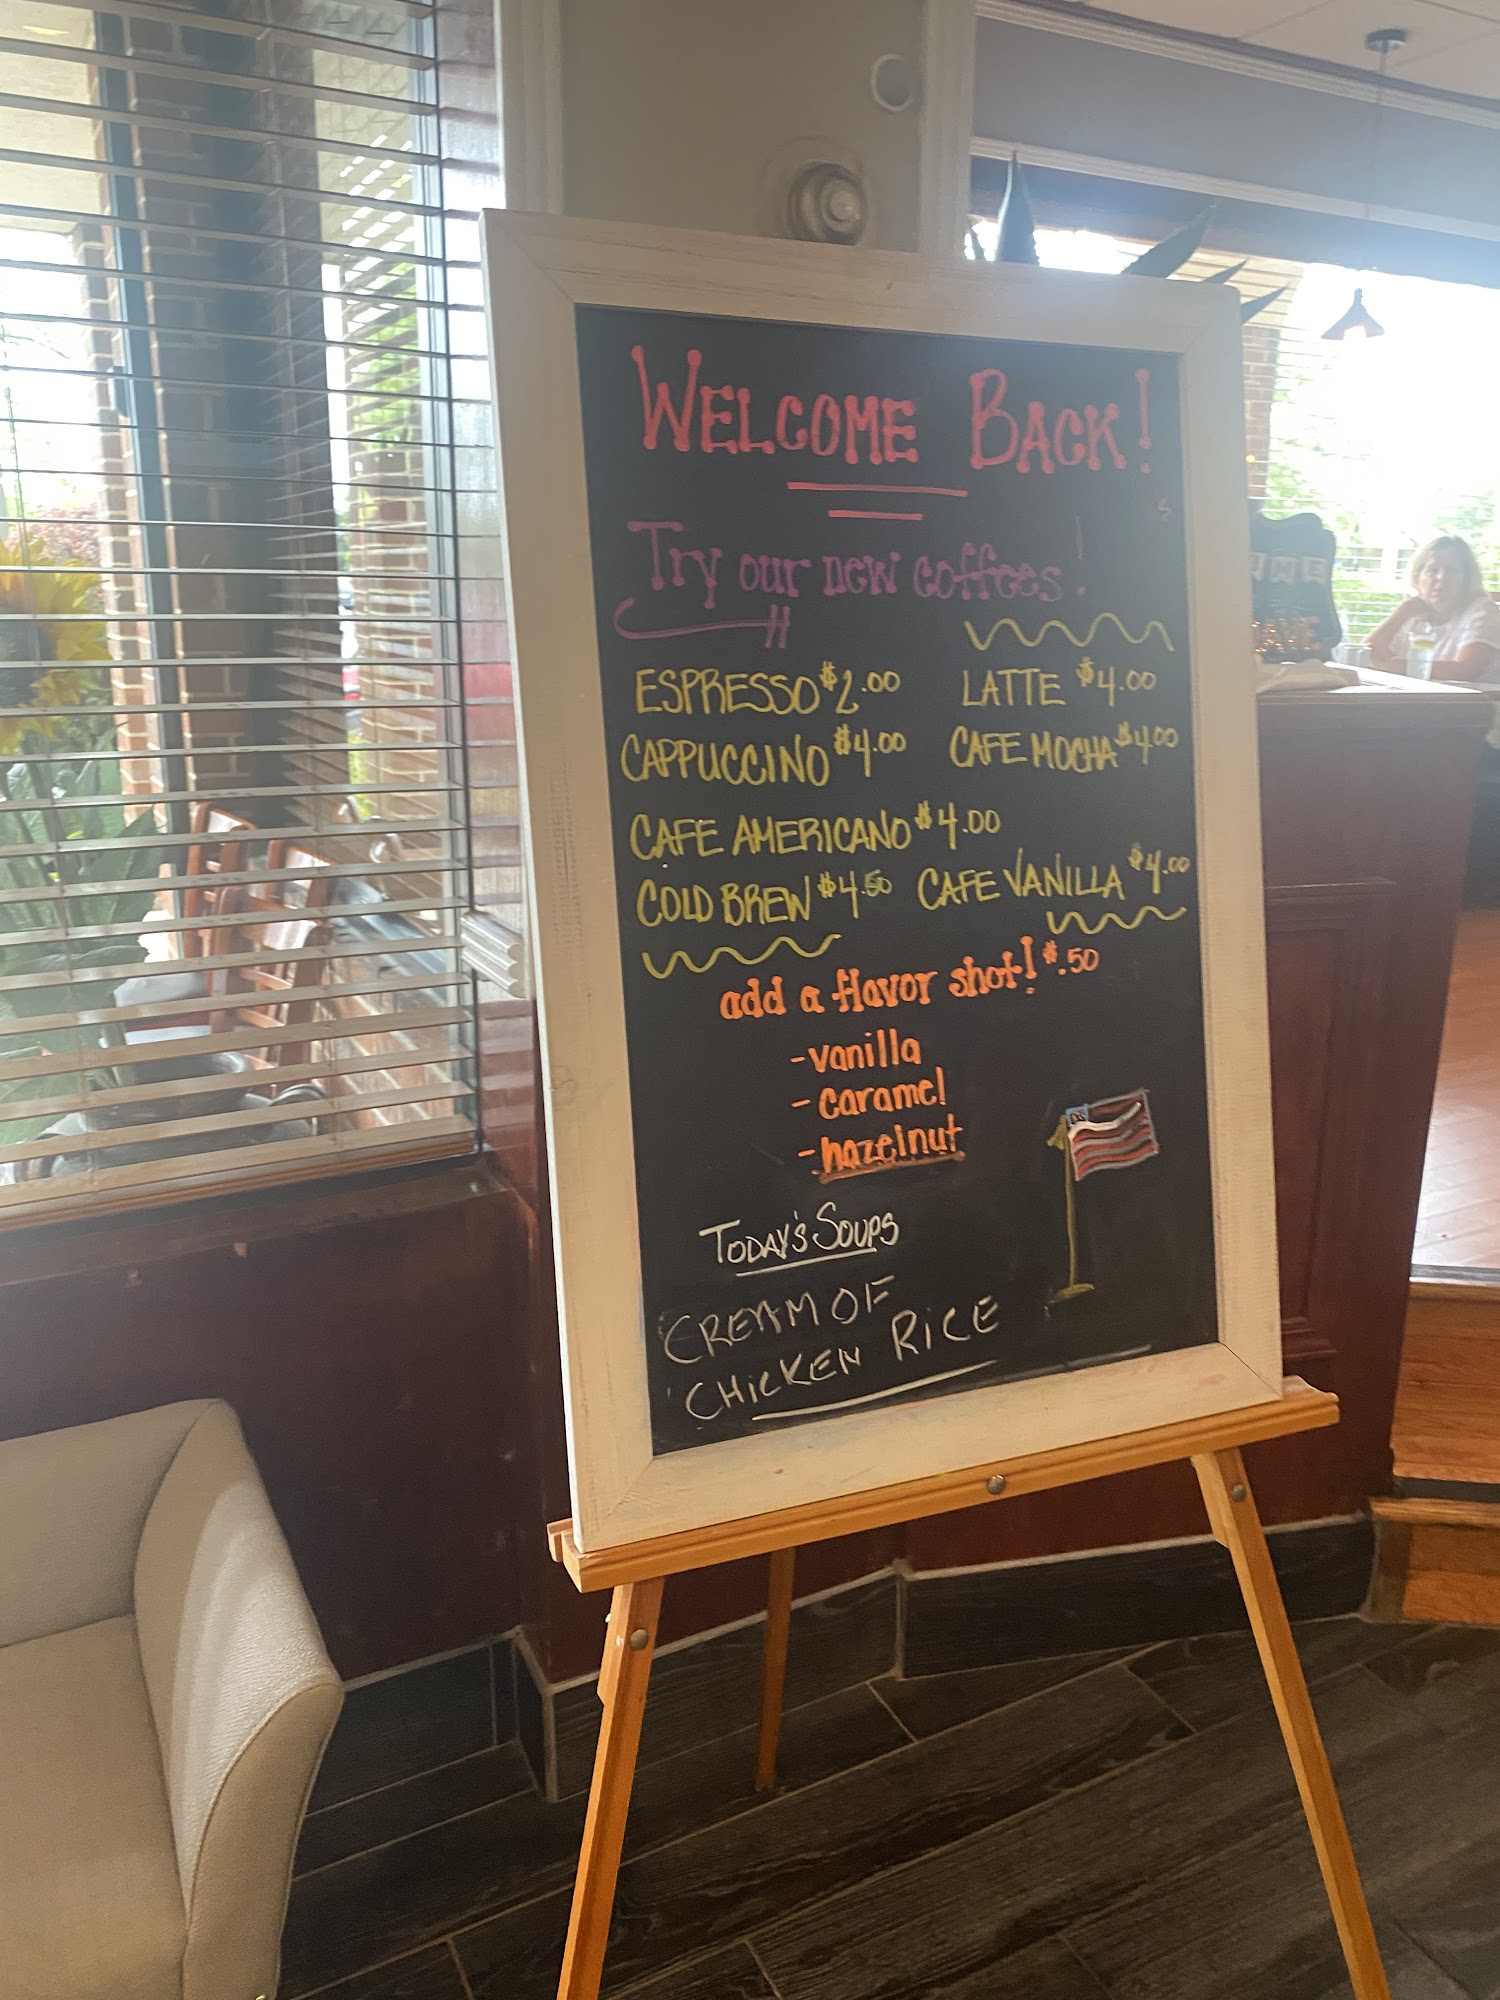 WELCOME BACK!
Try our new coffees!
ESPRESSO $2.00 LATTE $4.00
CAPPUCCINO $4.00 CAFE MOCHA $4.00
CAFE AMERICANO $4.00
COLD BREW $4.50 CAFE VANILLA $4.00
add a flavor shot! $.50
-vanilla
-caramel
-hazelnut
TODAY'S SOUPS
CREAM OF
CHICKEN RICE